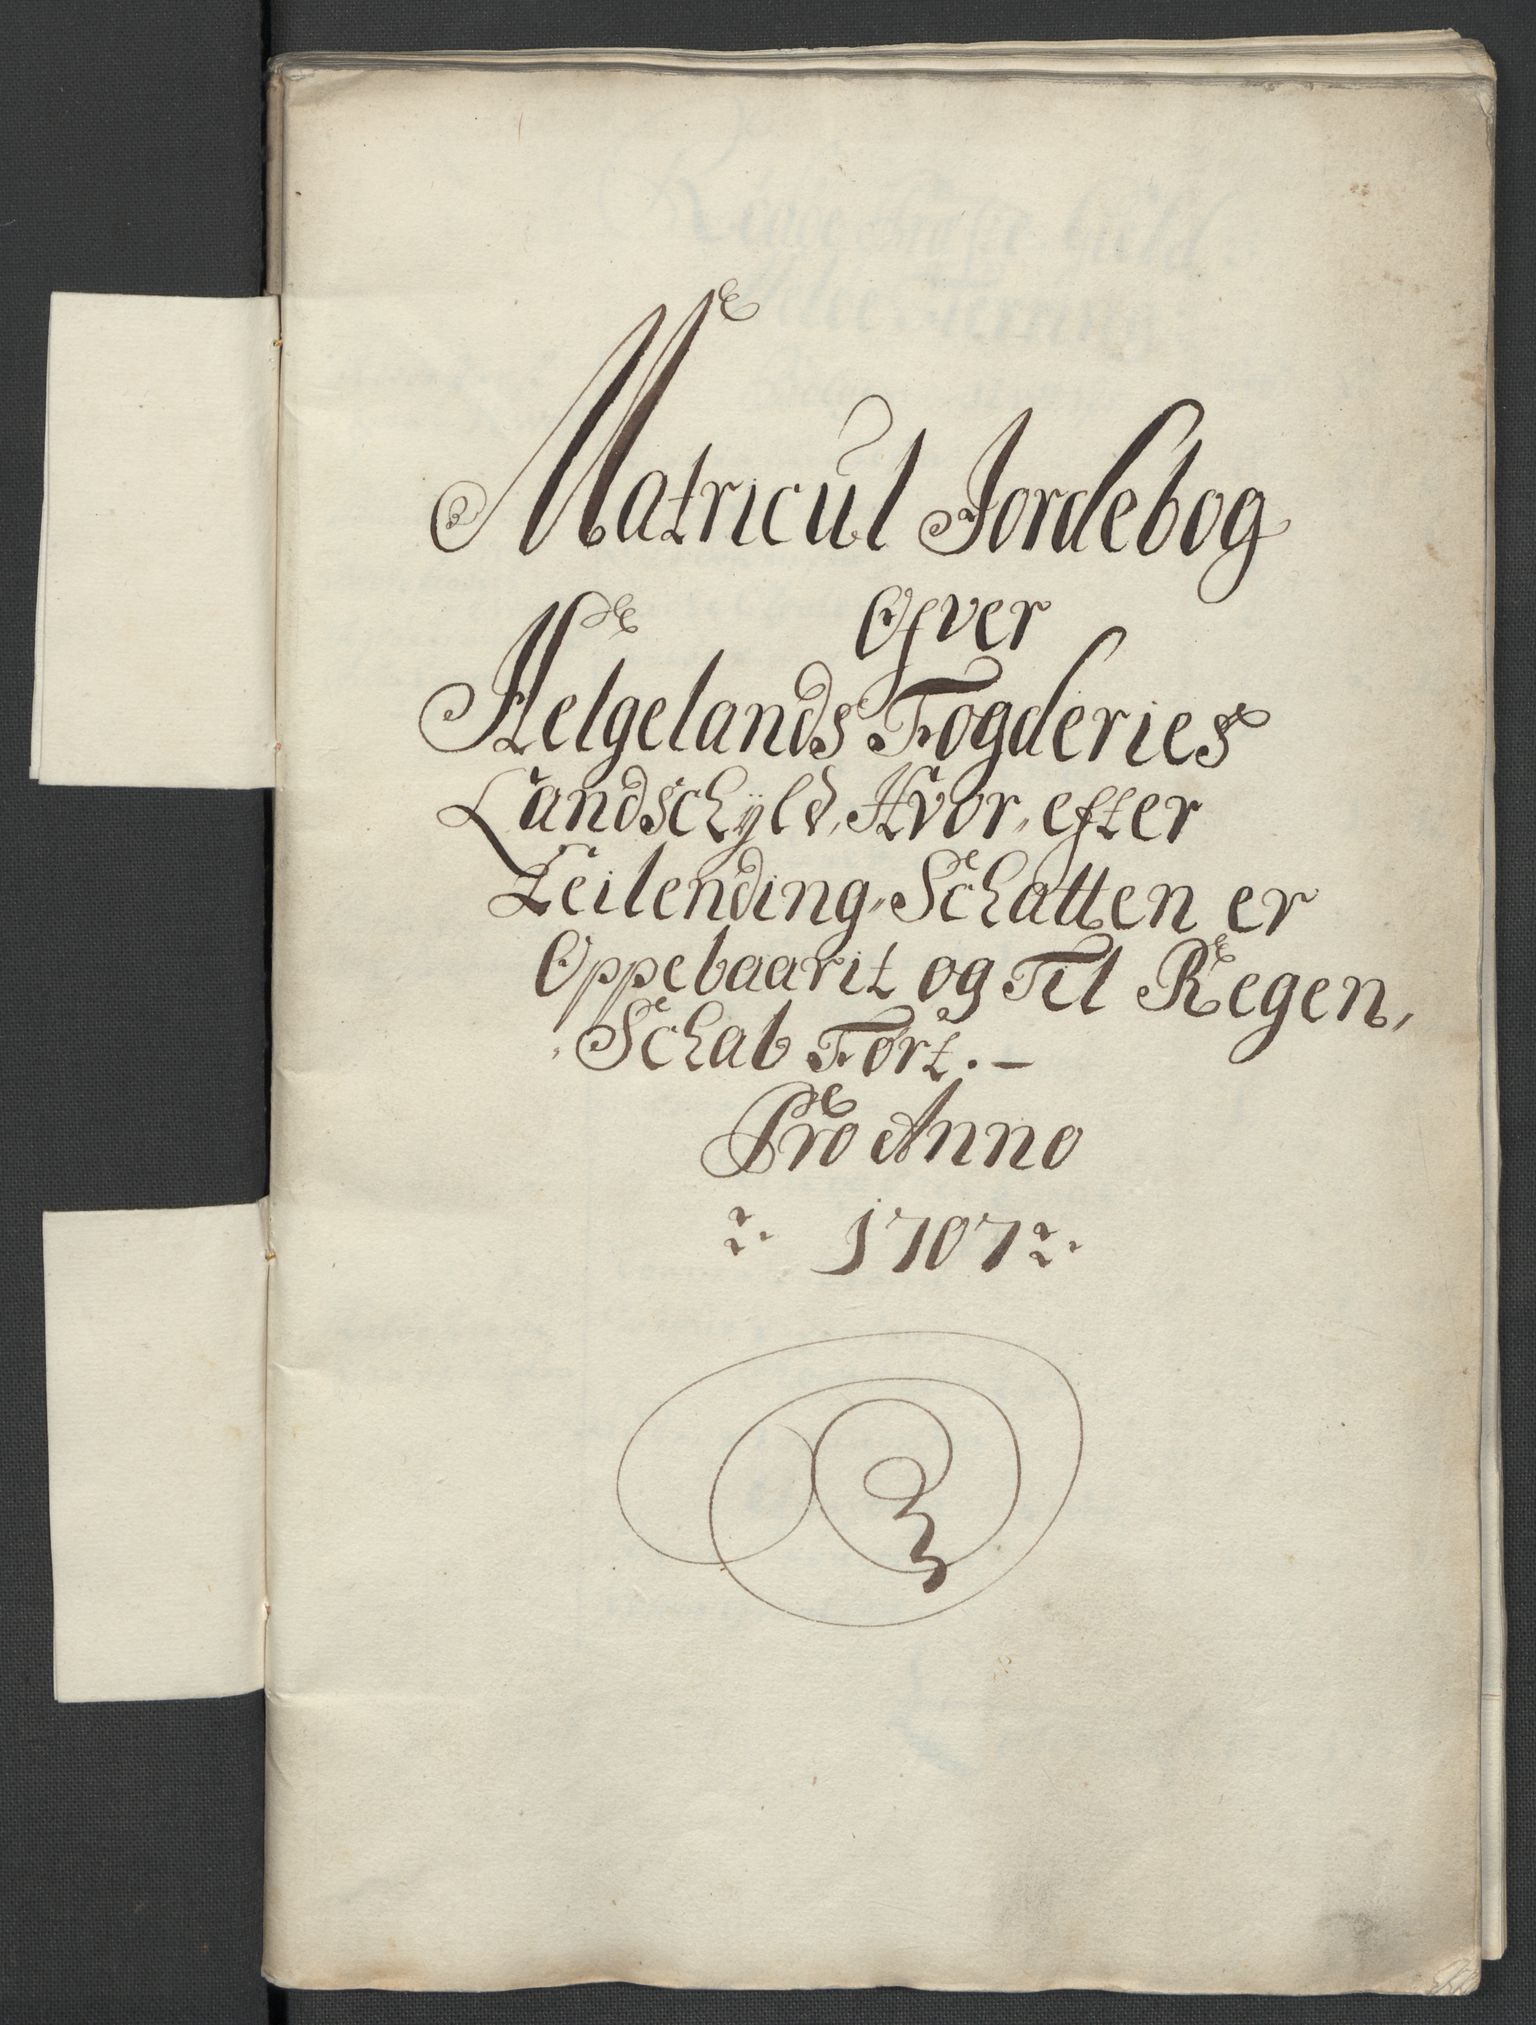 Matricul Jordebog
Ofver
Helgelands Fogderies
Landschyld, Hvor, efter
Leilending, Schatten er
Oppebaarit og Til Regen,
Schab Ført. –
Pro Anno
1707